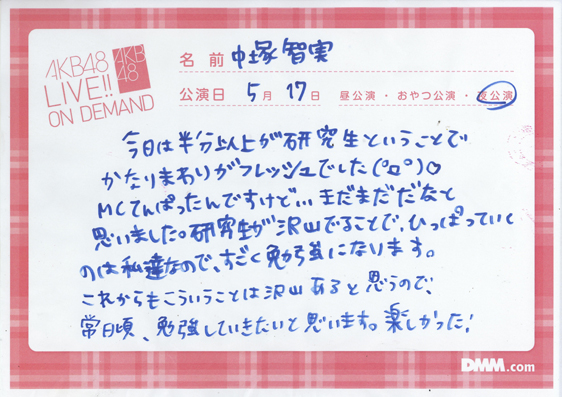 AKB48
LIVE!!
ON DEMAND
AKB
48
名前 中塚智実
公演日 5月17日 昼公演・おやつ公演・夜公演
今日は半分以上が研究生ということで
かなりまわりがフレッシュでした(°ロ°)♡
MCてんぱったんですけど… まだまだだなと
思いました。研究生が沢山でることで、ひっぱっていく
のは私達なので、すごく勉強になります。
これからもこういうことは沢山あると思うので、
常日頃、勉強していきたいと思います。楽しかった!
DMM.com